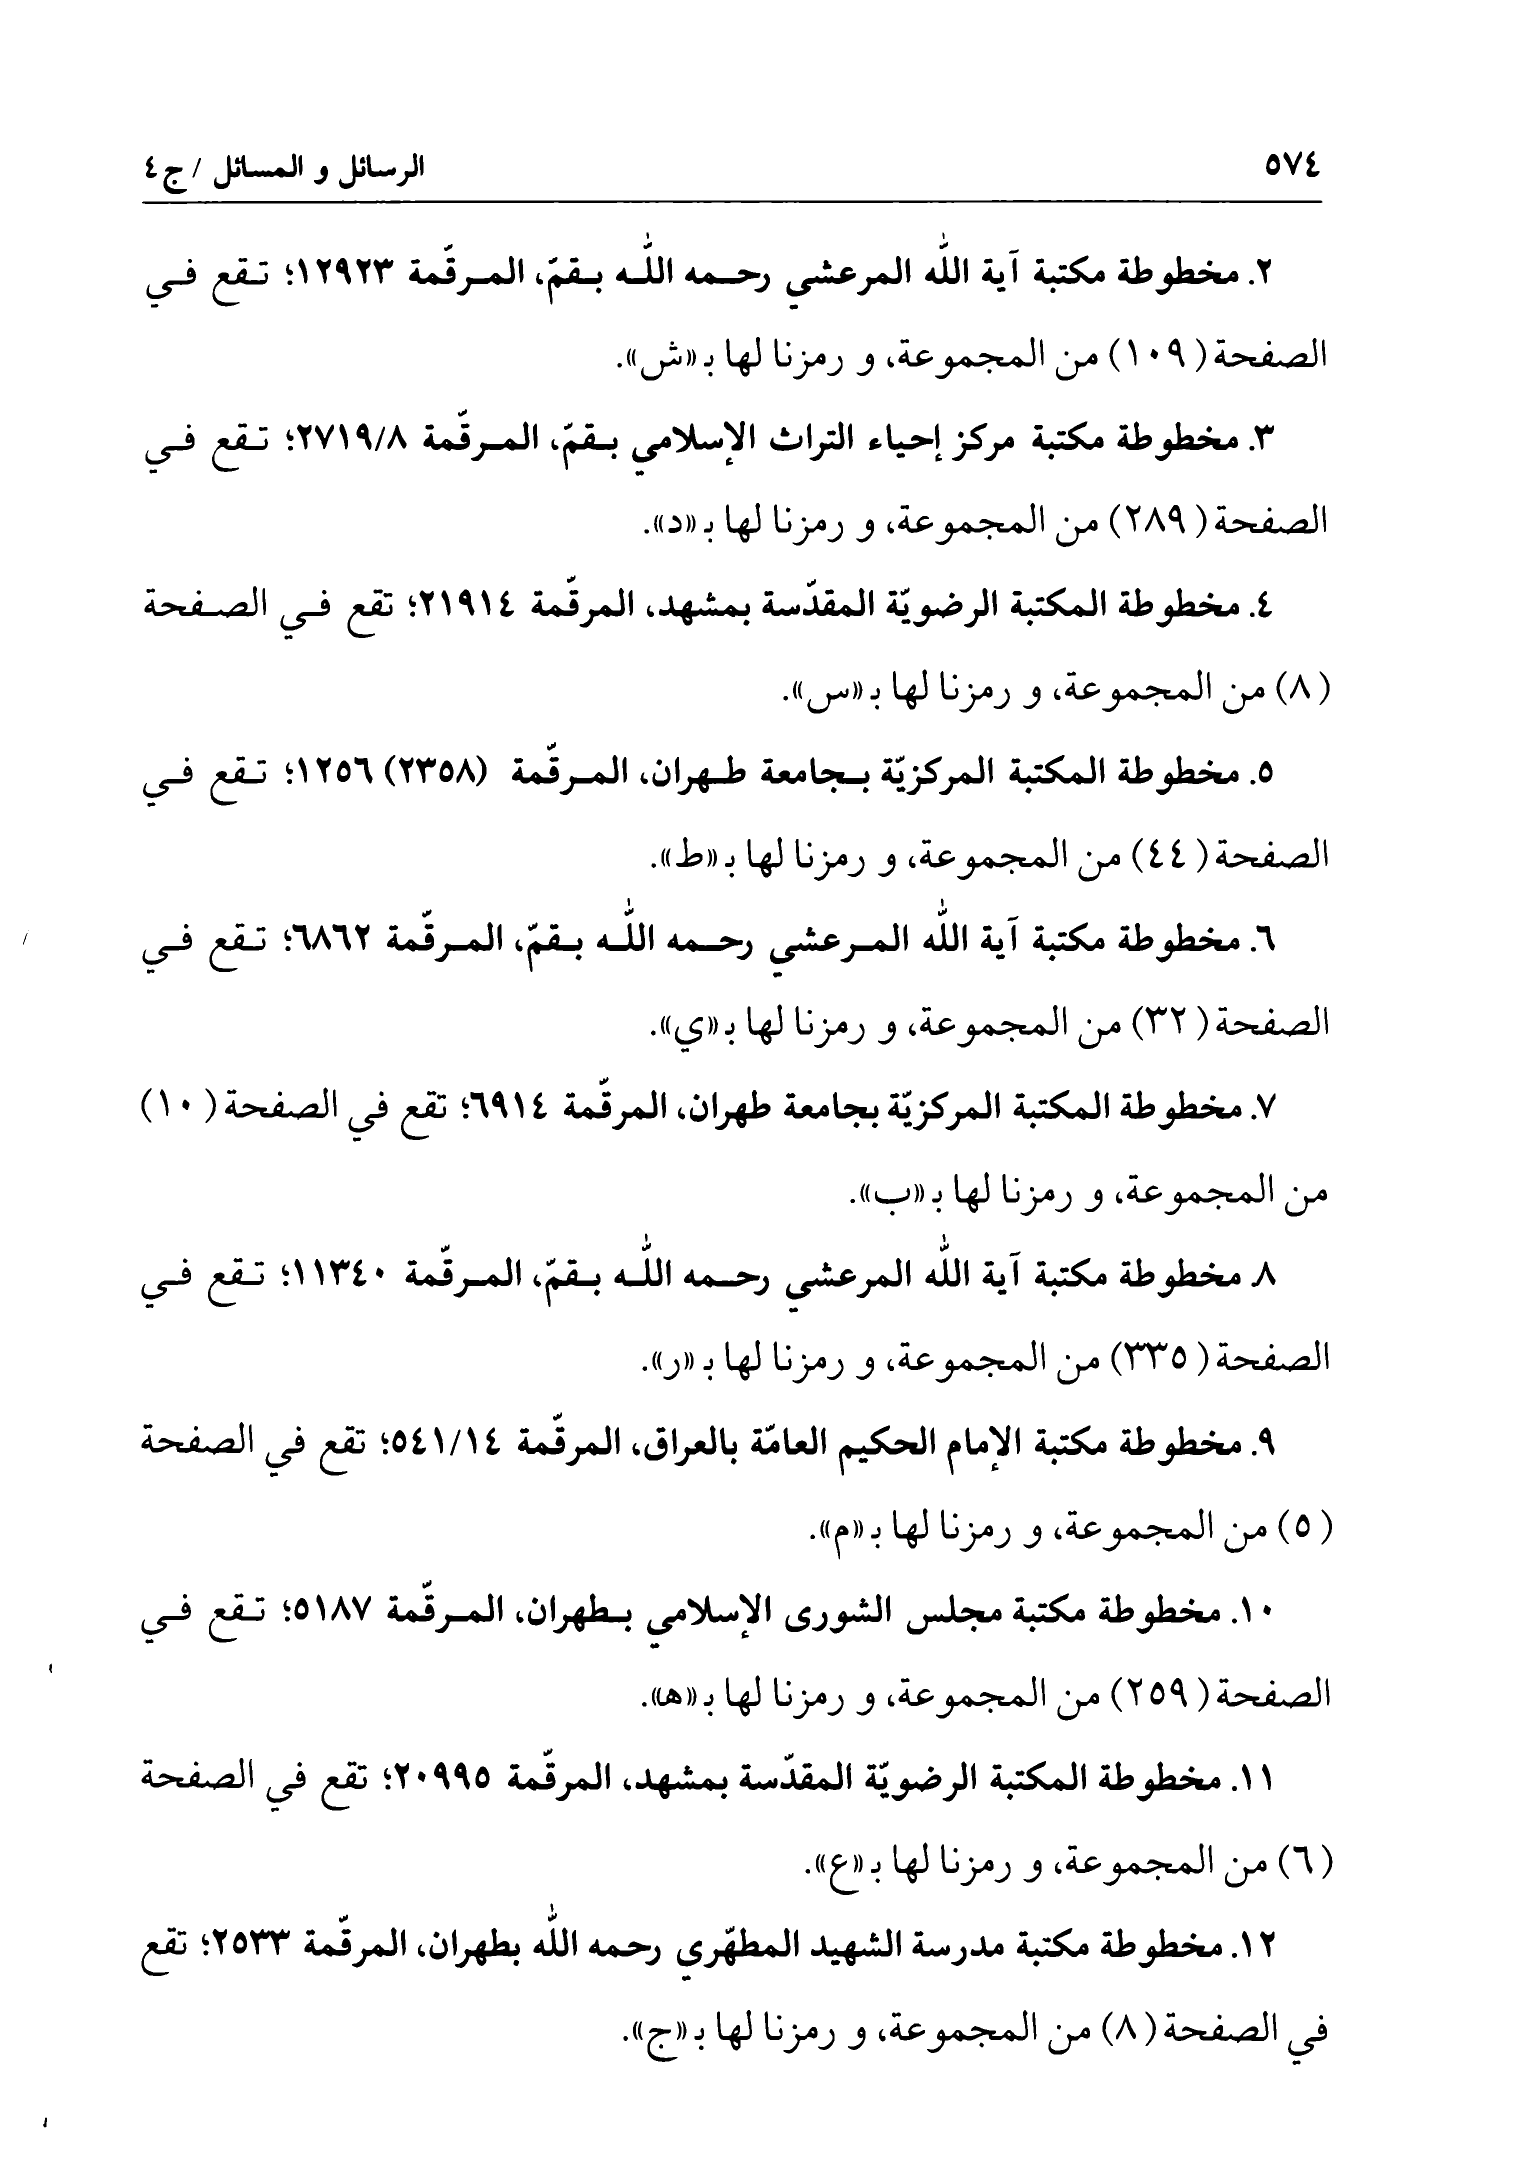 ٥٧٤ الرسائل و المسائل / ج٤
٢. مخطوطة مكتبة آية اللّٰه المرعشي رحمه اللّٰه بقمّ، المرقّمة ١٢٩٢٣؛ تقع في
الصفحة (١٠٩) من المجموعة، و رمزنا لها بـ«ش».
٣. مخطوطة مكتبة مركز إحياء التراث الإسلامي بقمّ، المرقّمة ٢٧١٩/٨؛ تقع في
الصفحة (٢٨٩) من المجموعة، و رمزنا لها بـ«د».
٤. مخطوطة المكتبة الرضويّة المقدّسة بمشهد، المرقّمة ٢١٩١٤؛ تقع في الصفحة
(٨) من المجموعة، و رمزنا لها بـ«س».
٥. مخطوطة المكتبة المركزيّة بجامعة طهران، المرقّمة (٢٣٥٨) ١٢٥٦؛ تقع في
الصفحة (٤٤) من المجموعة، و رمزنا لها بـ«ط».
٦. مخطوطة مكتبة آية اللّٰه المرعشي رحمه اللّٰه بقمّ، المرقّمة ٦٨٦٢؛ تقع في
الصفحة (٣٢) من المجموعة، و رمزنا لها بـ«ي».
٧. مخطوطة المكتبة المركزيّة بجامعة طهران، المرقّمة ٦٩١٤؛ تقع في الصفحة (١٠)
من المجموعة، و رمزنا لها بـ«ب».
٨. مخطوطة مكتبة آية اللّٰه المرعشي رحمه اللّٰه بقمّ، المرقّمة ١١٣٤٠؛ تقع في
الصفحة (٣٣٥) من المجموعة، و رمزنا لها بـ«ر».
٩. مخطوطة مكتبة الإمام الحكيم العامّة بالعراق، المرقّمة ٥٤١/١٤؛ تقع في الصفحة
(٥) من المجموعة، و رمزنا لها بـ«م».
١٠. مخطوطة مكتبة مجلس الشورى الإسلامي بطهران، المرقّمة ٥١٨٧؛ تقع في
الصفحة (٢٥٩) من المجموعة، و رمزنا لها بـ«ها».
١١. مخطوطة المكتبة الرضويّة المقدّسة بمشهد، المرقّمة ٢٠٩٩٥؛ تقع في الصفحة
(٦) من المجموعة، و رمزنا لها بـ«ع».
١٢. مخطوطة مكتبة مدرسة الشهيد المطهّري رحمه اللّٰه بطهران، المرقّمة ٢٥٣٣؛ تقع
في الصفحة (٨) من المجموعة، و رمزنا لها بـ«ج».